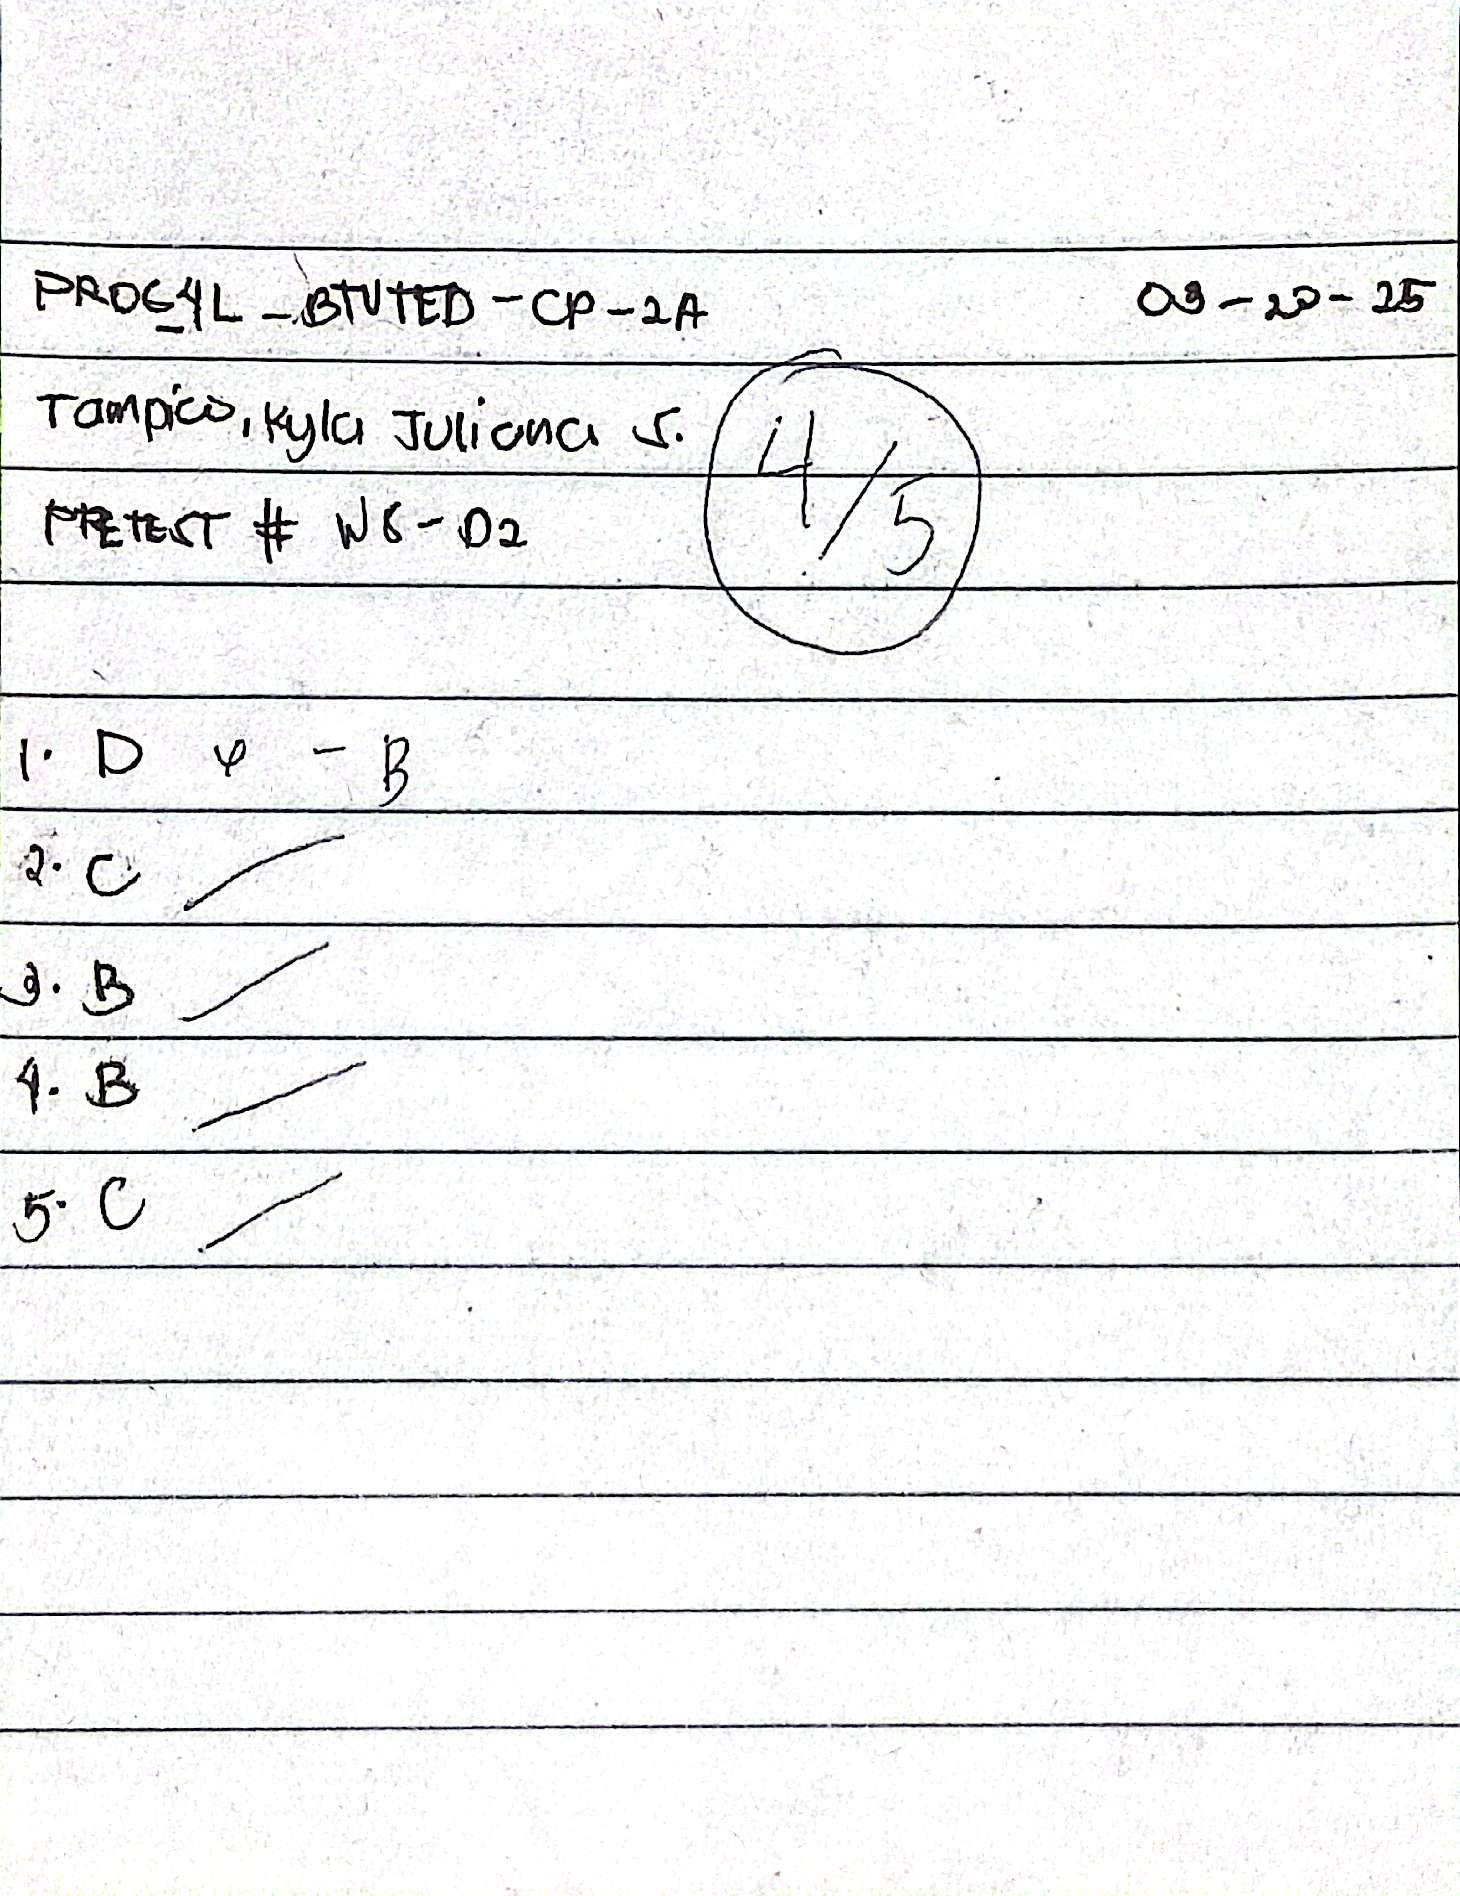 PROG4L - BTVTED - CP - 2A 03 - 20 - 25
Tampico, Kyla Juliana S.
4/5
PRETEST # W6 - D2
1. D - B
2. C
3. B
4. B
5. C